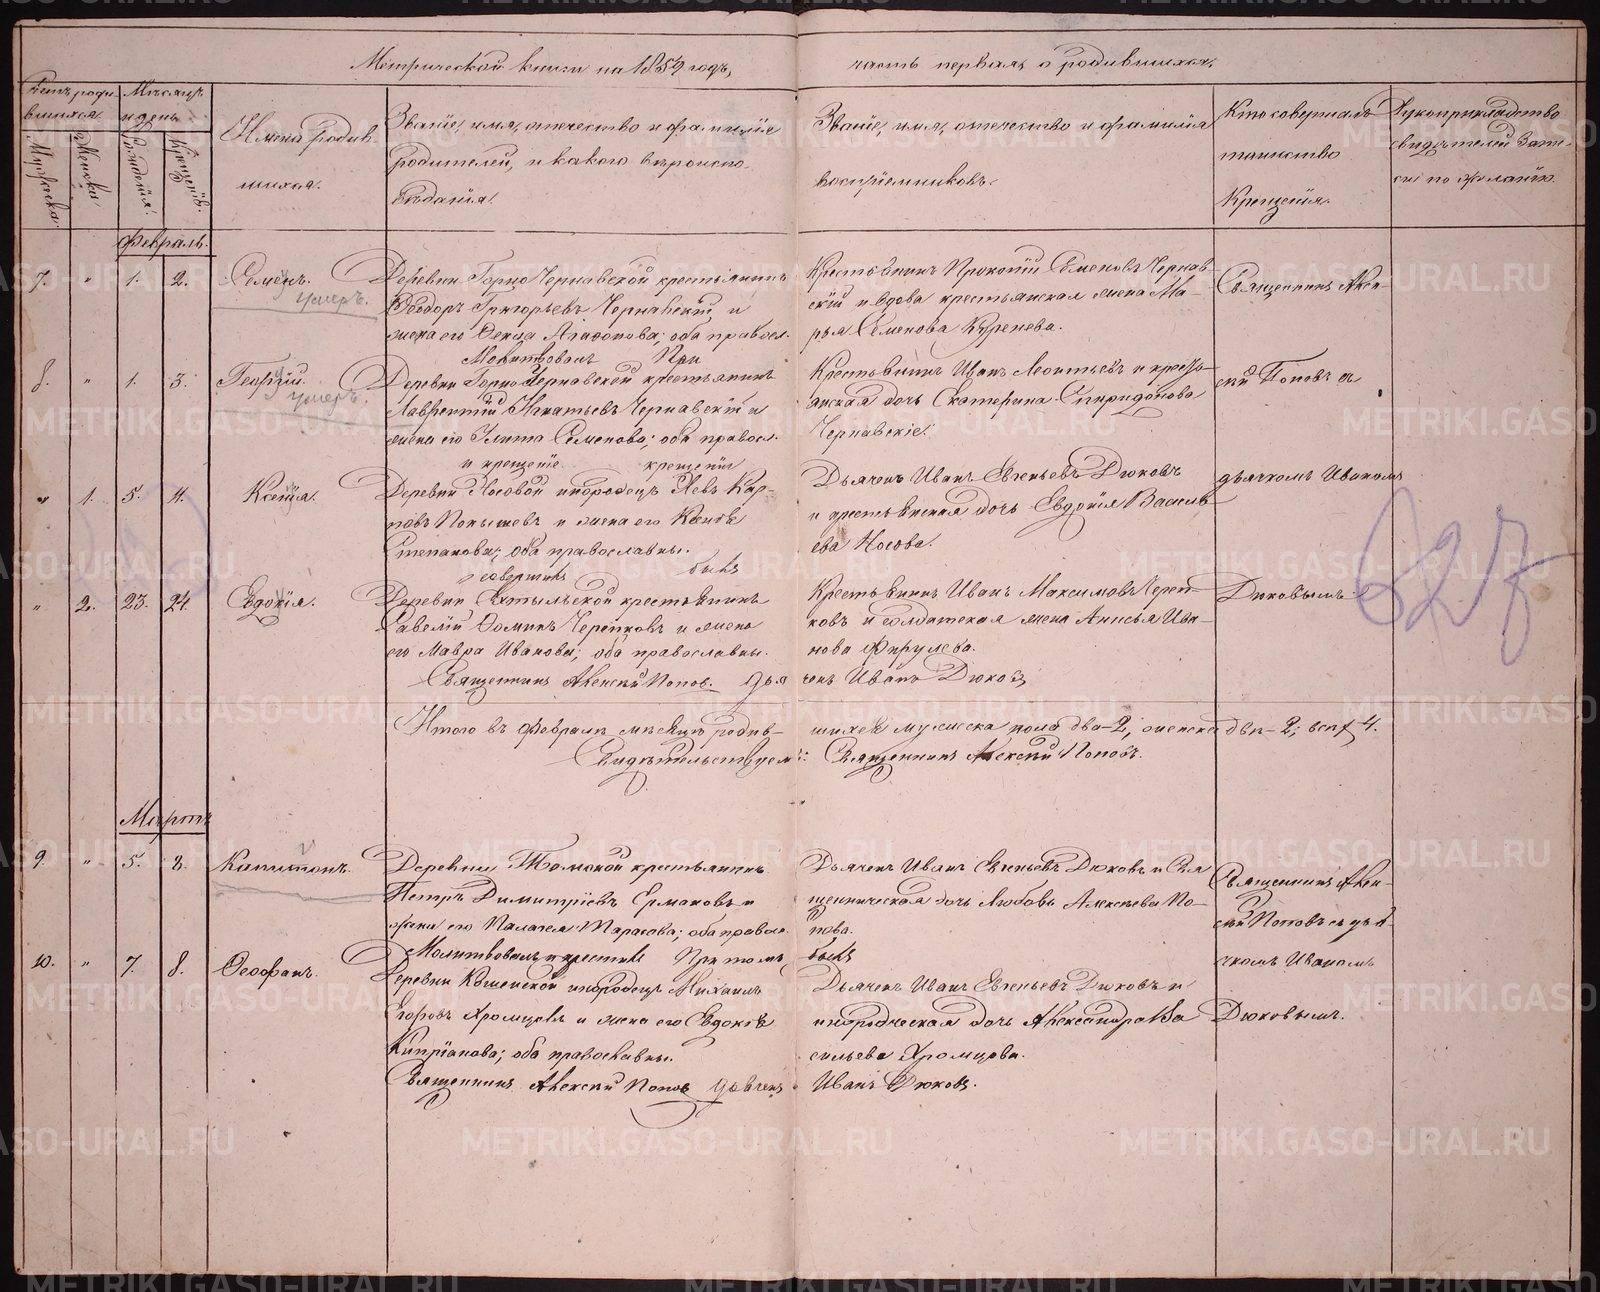 Метрической книги на 1859 годъ, часть первая, о родившихся.
Счетъ роди-
вшихся.
Мѣсяцъ
и день
Мужеска.
Женска.
Рожденія.
Крещенія.
Имена родив-
шихся.
Званіе, имя, отечество и фамиліе
родителей, и какого вѣроиспо-
вѣданія.
Званіе, имя, отечество и фамилія
воспріемниковъ.
Кто совершалъ
таинство
Крещенія.
Рукоприкладство
свидѣтелей запи-
си по желанію.
Февраль.
7. " 1. 2. Семенъ.
умеръ.
Деревни Горно Чернавской крестьянинъ
Ѳеодоръ Григорьевъ Чернавскій, и
жена его Агафонова; оба правосл.
Крестьянинъ Прокопій Семеновъ Чернав-
скій и вдова крестьянская жена Ма-
рья Семенова
Священникъ Алек-
Молитвовалъ При
8. " 1. 3. Георгій.
умеръ.
Деревни Горно Чернавской крестьянинъ
Лаврентій Игнатьевъ Чернавскій и
жена его Улита Семенова; оба правосл.
Крестьянинъ Иванъ Леонтьевъ и кресть-
янская дочь Екатерина Спиридонова
Чернавскіе.
сѣй Поповъ съ
и крещеніе крещеніи
" 1. 5. 4. Ксенія.
Деревни Носовой инородецъ Левъ Кар-
повъ и жена его
Степанова; оба православны.
Дьячекъ Иванъ Евгеньевъ Дюковъ
и крестьянская дочь Евдокія Василь-
ева Носова.
дьячкомъ Иваномъ
совершилъ былъ
" 2. 23. 24. Евдокія.
Деревни крестьянинъ
Савелій Ѳоминъ Черепковъ и жена
его Мавра Иванова; оба православны.
Крестьянинъ Иванъ Максимовъ Череп-
ковъ и солдатская жена Анисья Ива-
нова Фирулева.
Дюковымъ.
Священникъ Алексѣй Поповъ. Дья чекъ Иванъ Дюковъ
Итого въ Февралѣ мѣсяцѣ родив- шихся мужеска пола два-2, женска двѣ-2; всѣхъ 4.
Свидѣтельствуемъ: Священникъ Алексѣй Поповъ.
Мартъ
9. " 5. 8. Капитонъ.
Деревни крестьянинъ
Петръ Димитріевъ Ермаковъ и
жена его Палагея Тарасова; оба правосл.
Дьячекъ Иванъ Евгеньевъ Дюковъ и Свя
щенническая дочь Любовь Алексѣева По-
пова.
Священникъ Алек-
сѣй Поповъ съ дья-
Молитвовалъ и крестилъ При томъ былъ
10. " 7. 8. Ѳеофанъ.
Деревни инородецъ Михаилъ
Егоровъ Хромцовъ и жена его Евдокія
Кипріанова; оба православны.
Дьячекъ Иванъ Евгеньевъ Дюковъ и
инородческая дочь Александра Ва
сильева Хромцова.
чкомъ Иваномъ
Дюковымъ.
Священникъ Алексѣй Поповъ Дьячекъ Иванъ Дюковъ.
627
METRIKI.GASO-URAL.RU